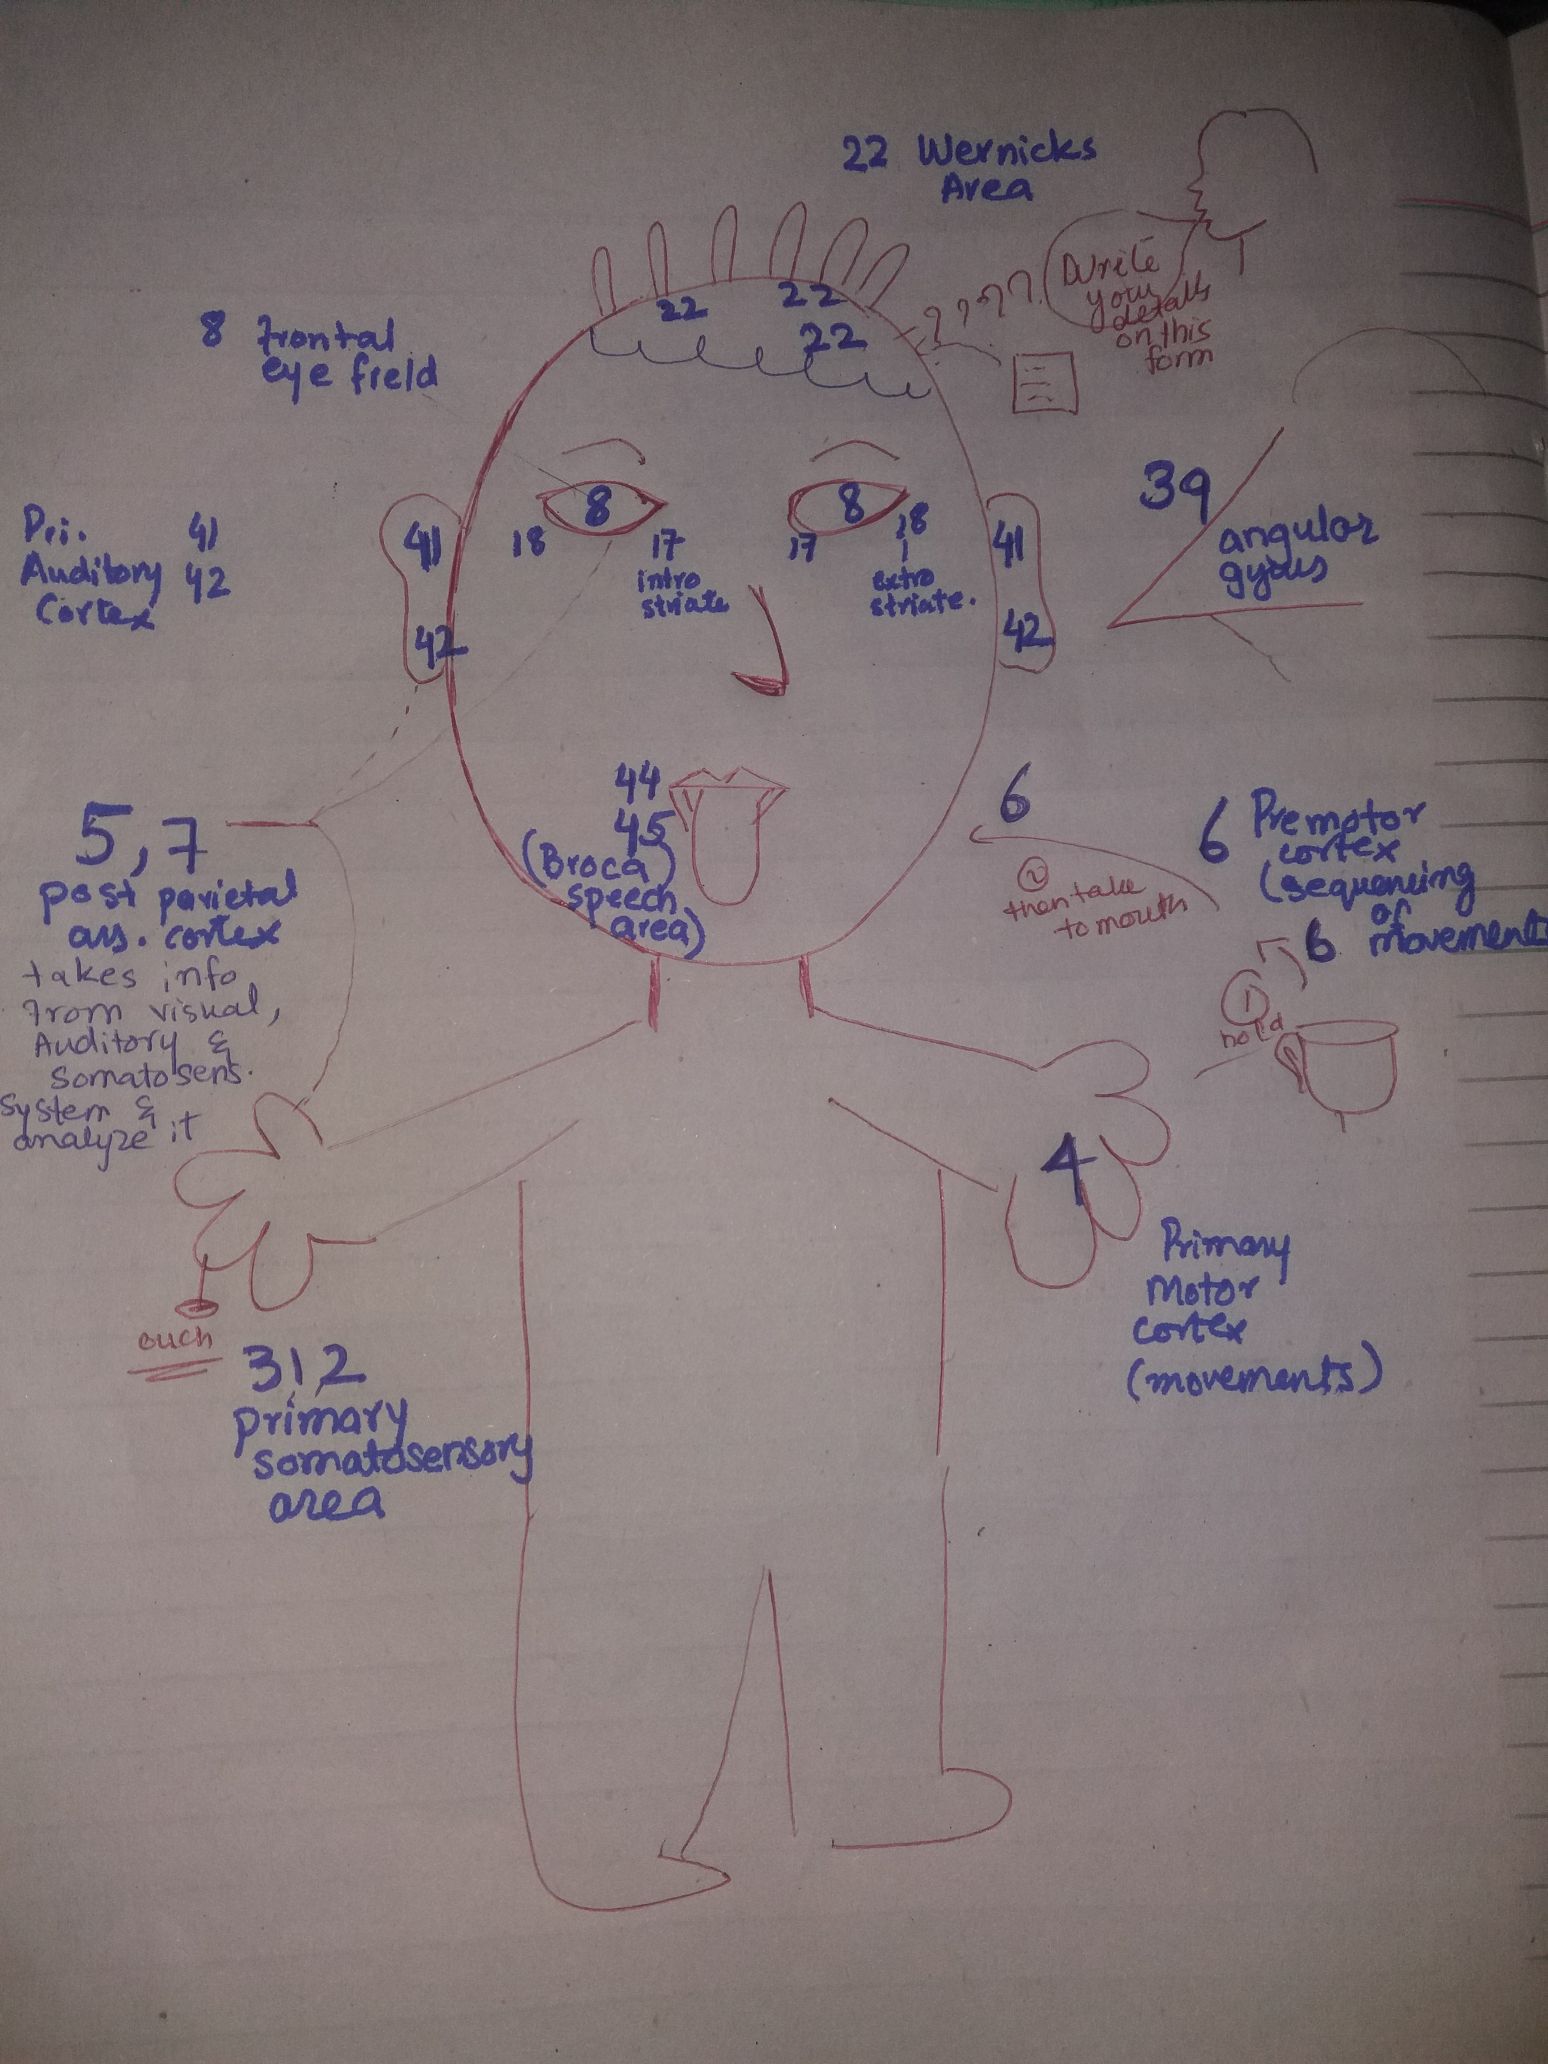 22 Wernicks
Area
Write
your
details
on this
form
????
22 22
22
8 frontal
eye field
8 8
18 17 17 18
intro
striate
extro
striate.
39
angular
gyrus
Pri. 41
Auditory 42
Cortex
41
42
41
42
44
45
(Broca)
speech
area)
6
2
then take
to mouth
6 Premotor
cortex
(sequencing
of
movements
6
1
hold
5,7
post parietal
ass. cortex
takes info
from visual,
Auditory &
Somatosens.
System &
analyze it
4
Primary
Motor
cortex
(movements)
ouch
3,1,2
primary
somatosensory
area